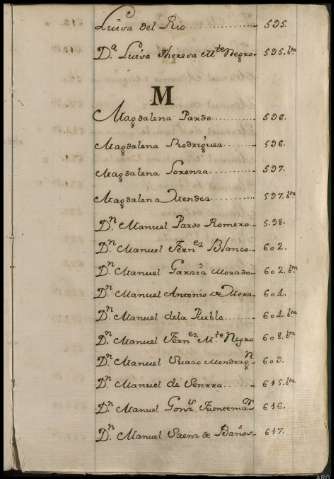 Luisa del Rio ........ 595.
D.ª Luisa Theresa M.te Negro 595. bta
M
Magdalena Pardo ........ 596.
Magdalena Rodrigues ..... 596.
Magdalena Lorenza ....... 597.
Magdalena Mendes ....... 597. bta
D.n Manuel Pardo Romero .. 598.
D.n Manuel Fern.es Blanco .. 602.
D.n Manuel Garzia Morado .. 602. bta
D.n Manuel Antonio de Mora. 604.
D.n Manuel dela Puebla .... 604. bta
D.n Manuel Fern.es M.te Negro 608. bta
D.n Manuel 609.
D.n Manuel de .... 615. bta
D.n Manuel Gonz.s 616.
D.n Manuel Saenz de Baños. 617.